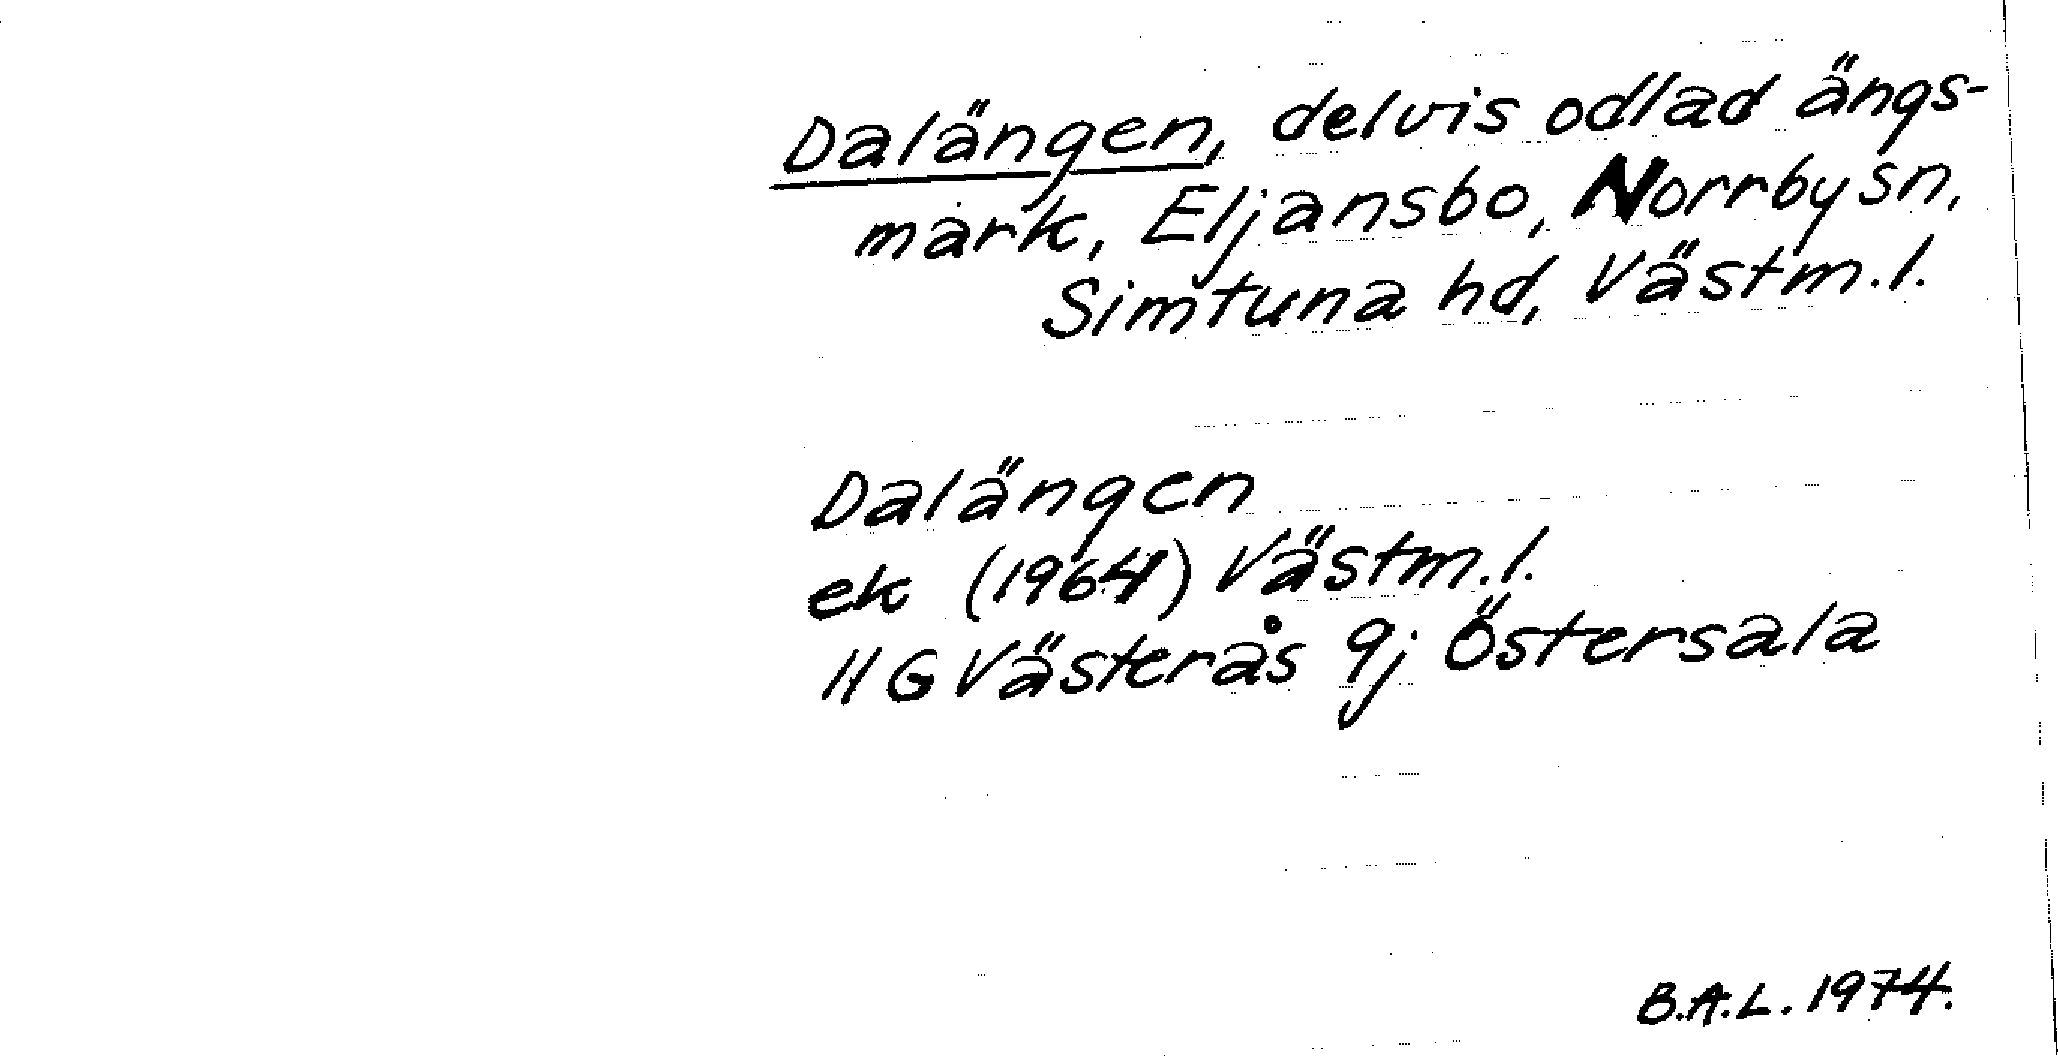 Dalängen, delvis odlad ängs-
mark, Eljansbo, Norrby sn,
Simtuna hd, Västm.l.
Dalängen
ek (1964) Västm.l.
11G Västerås 9j Östersala
B.A.L. 1974.